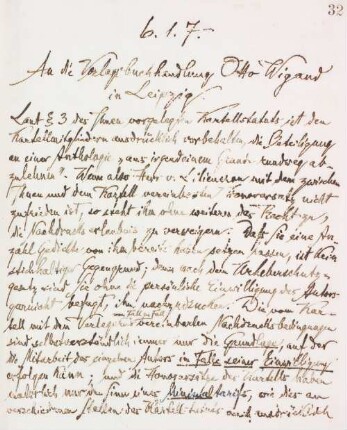 32
6.1.7.
An die Verlagsbuchhandlung Otto Wigand
in Leipzig.
Laut § 3 des Ihnen vorgelegten Kartellstatuts ist den
Kartellmitgliedern ausdrücklich vorbehalten, die Beteiligung
an einer Anthologie „aus irgendeinem Grunde rundweg ab
zulehnen". Wenn also Herr v. Liliencron mit dem zwischen
Ihnen und dem Kartell vereinbarten Honorarsatz nicht
zufrieden ist, so steht ihm ohne weiteres das Recht zu,
die Nachdruckserlaubnis zu verweigern. Daß Sie eine An-
zahl Gedichte von ihm bereits haben setzen lassen, ist kein
stichhaltiger Gegengrund; denn nach dem Urheberschutz-
gesetz sind Sie ohne die persönliche Einwilligung des Autors
garnicht befugt, ihn nachzudrucken. Die vom Kar-
tell mit den Verlegern von Fall zu Fall vereinbarten Nachdrucksbedingungen
sind selbstverständlich immer nur die Grundlage, auf der
die Mitarbeit der einzelnen Autors im Falle seiner Einwilligung
erfolgen kann; und die Honorarsätze des Kartells haben
natürlich nur den Sinn eines Minimaltarifs, wie dies an
verschiedenen Stellen des Kartell-
ausdrücklich